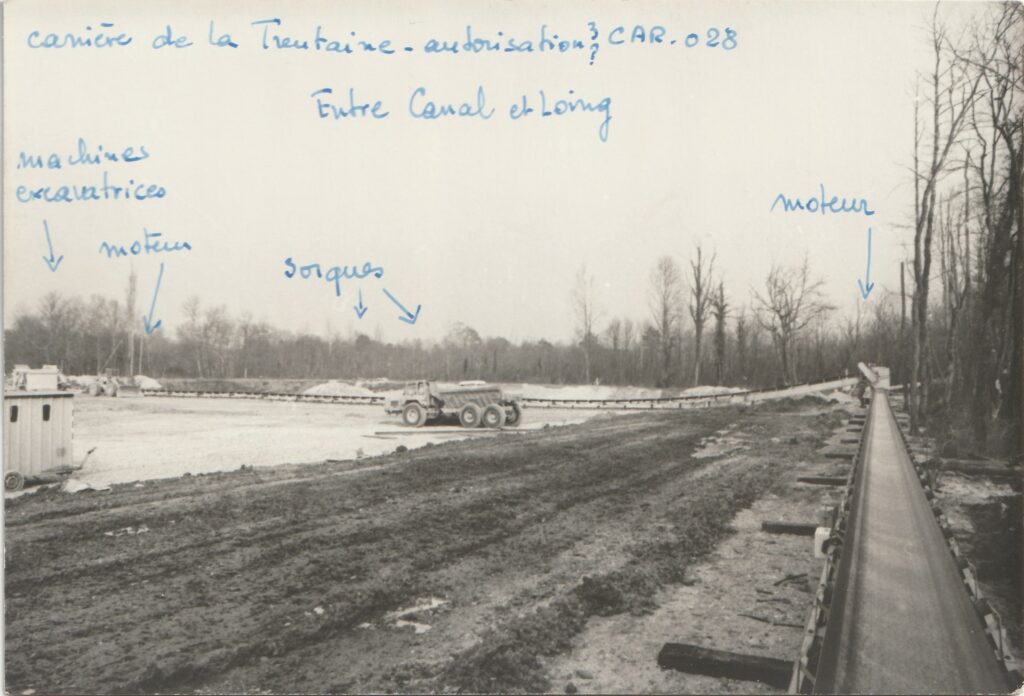 carrière de la Treutaine - autorisation ?? CAR. 028
Entre Canal et Loing
machines
excavatrices
moteur
Sorques
moteur